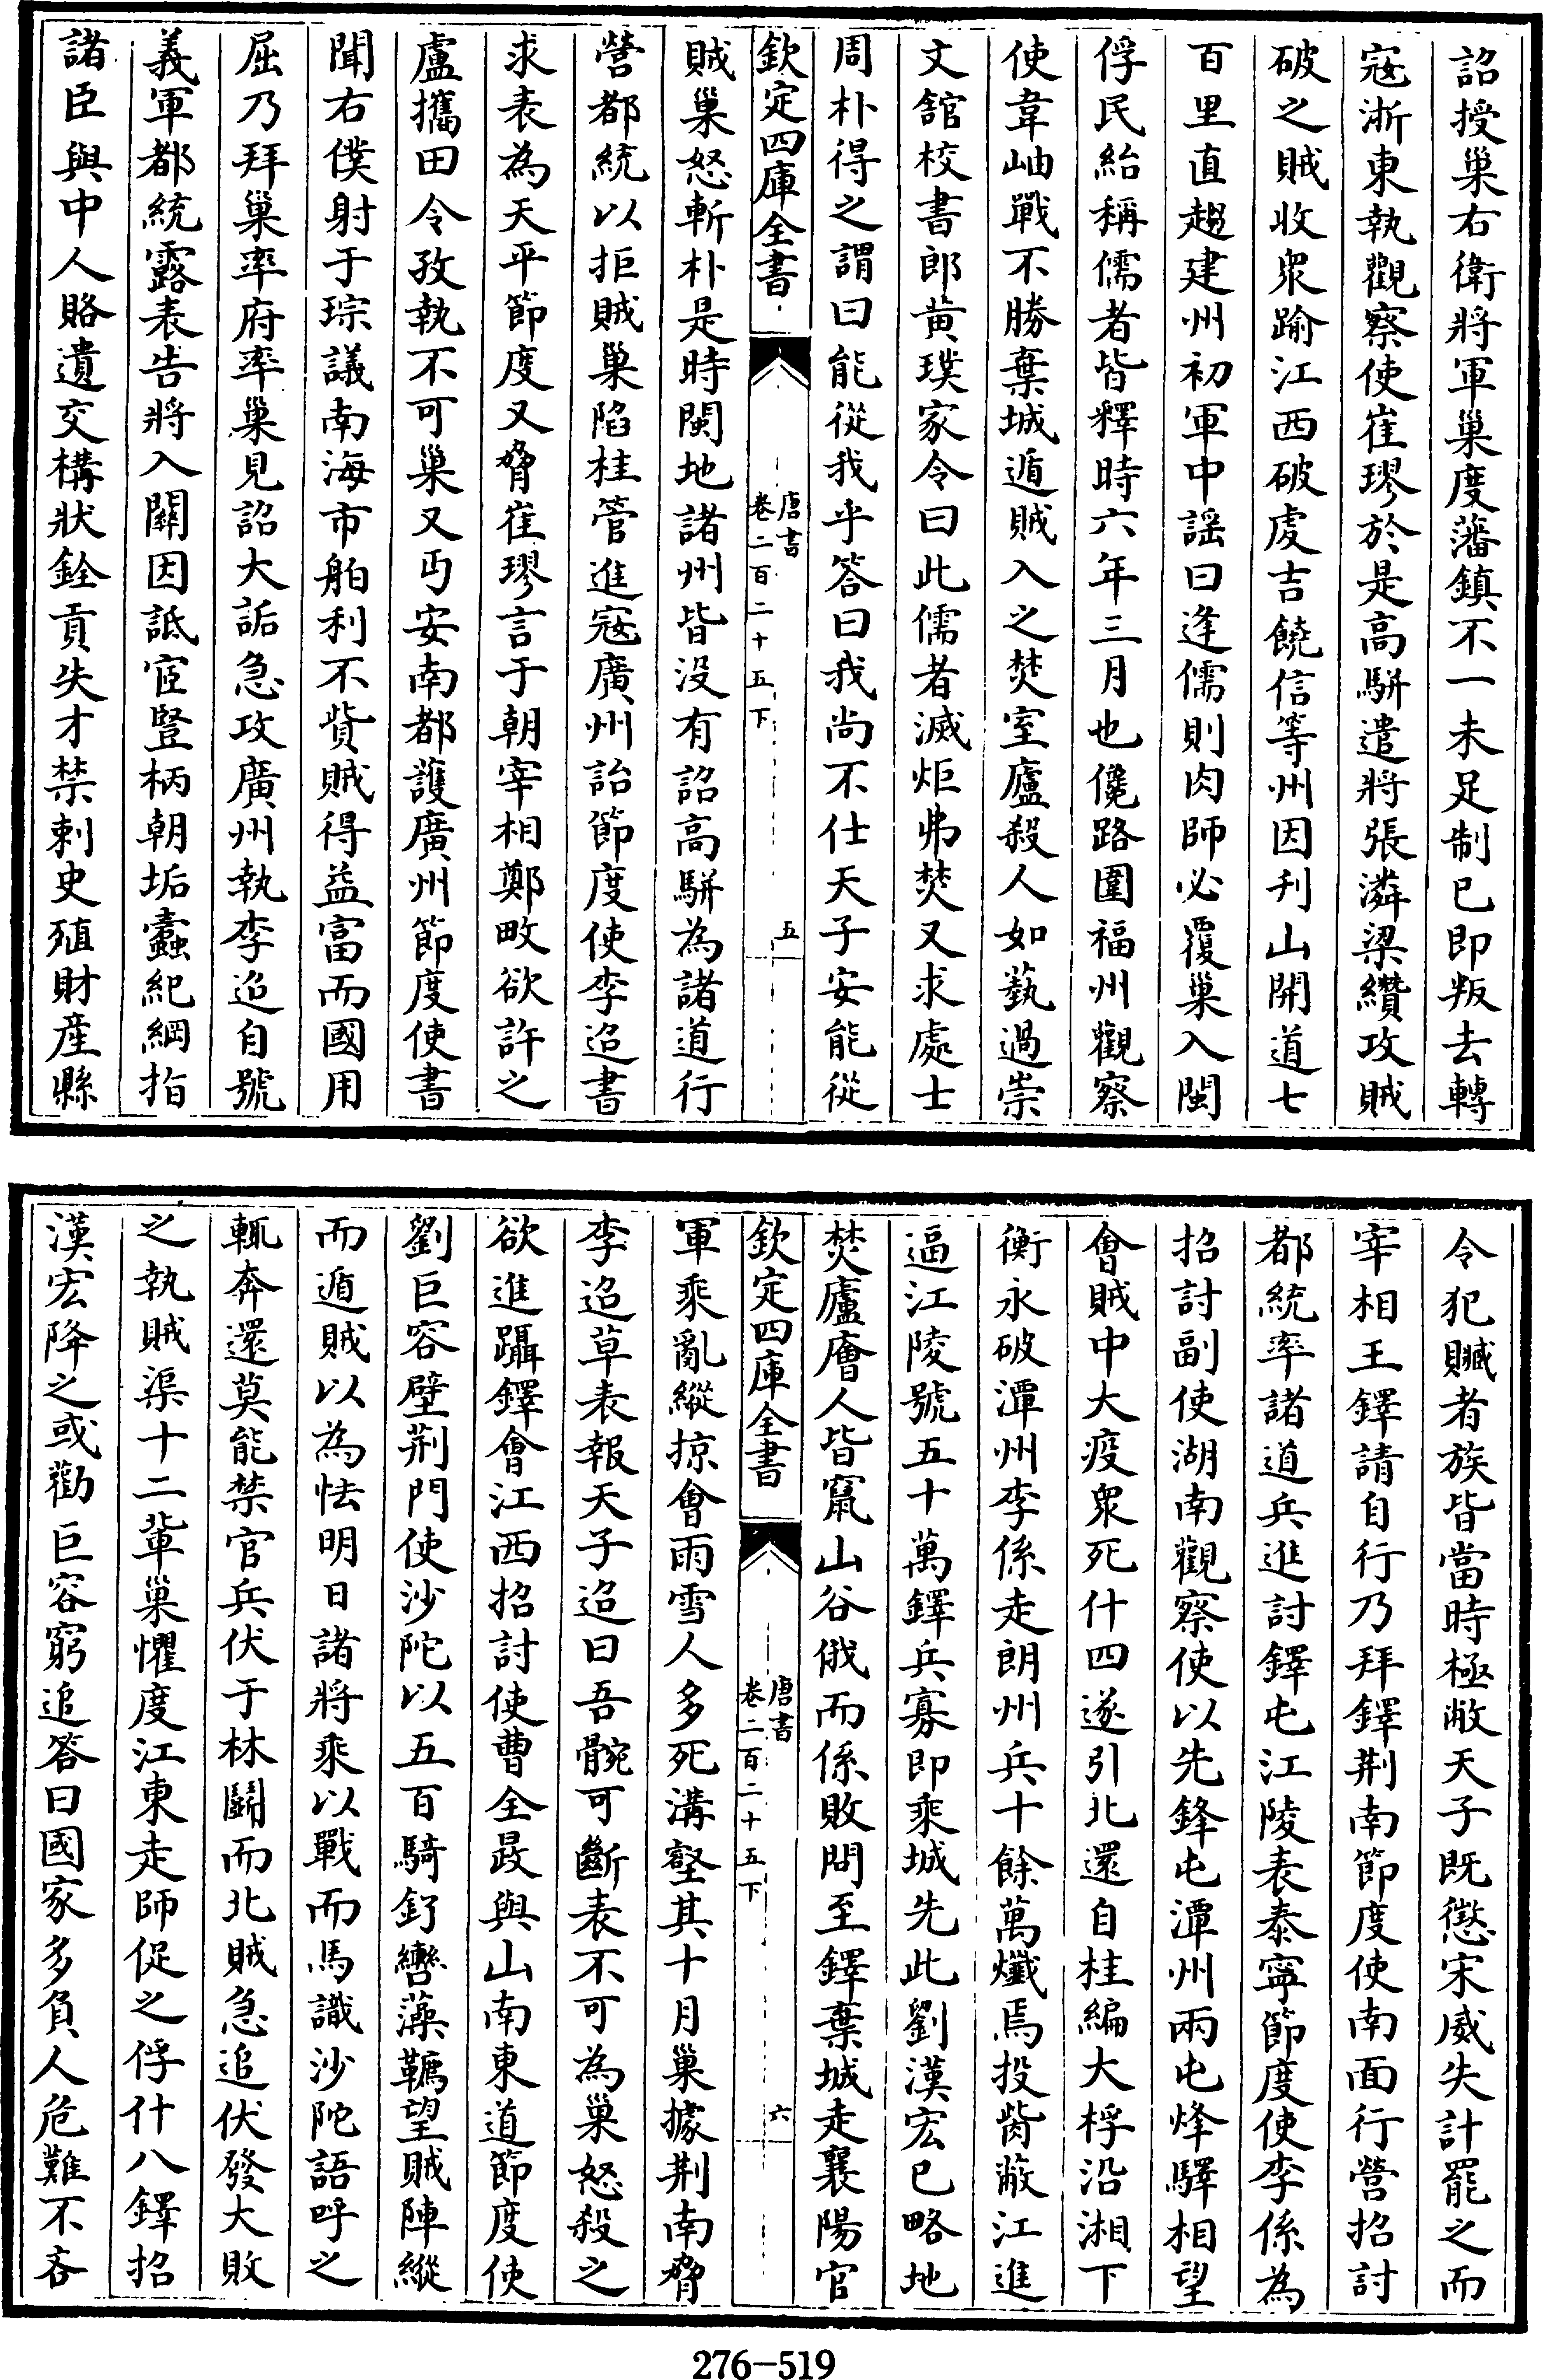 詔授巢右衛將軍巢度藩鎮不一未足制已即叛去轉
寇浙東執觀察使崔璆於是高駢遣將張潾梁纘攻賊
破之賊收衆踰江西破虔吉饒信等州因刋山開道七
百里直趨建州初軍中謡曰逢儒則肉師必覆巢入閩
俘民紿稱儒者皆釋時六年三月也儳路圍福州觀察
使韋岫戰不勝棄城遁賊入之焚室廬殺人如蓺過崇
文舘校書郎黄璞家令曰此儒者滅炬弗焚又求處士
周朴得之謂曰能從我乎答曰我尚不仕天子安能從
欽定四庫全書
唐書
卷二百二十五下
五
賊巢怒斬朴是時閩地諸州皆没有詔高駢為諸道行
營都統以拒賊巢陷桂管進寇廣州詒節度使李迢書
求表為天平節度又脅崔璆言于朝宰相鄭畋欲許之
盧攜田令孜執不可巢又丐安南都護廣州節度使書
聞右僕射于琮議南海市舶利不貲賊得益富而國用
屈乃拜巢率府率巢見詔大詬急攻廣州執李迢自號
義軍都統露表告將入關因詆宦豎柄朝垢蠹紀綱指
諸臣與中人賂遺交構狀銓貢失才禁刺史殖財産縣
令犯贓者族皆當時極敝天子既懲宋威失計罷之而
宰相王鐸請自行乃拜鐸荆南節度使南面行營招討
都統率諸道兵進討鐸屯江陵表泰寧節度使李係為
招討副使湖南觀察使以先鋒屯潭州兩屯烽驛相望
會賊中大疫衆死什四遂引北還自桂編大桴沿湘下
衡永破潭州李係走朗州兵十餘萬殲焉投胔蔽江進
逼江陵號五十萬鐸兵寡即乘城先此劉漢宏已略地
焚廬廥人皆竄山谷俄而係敗問至鐸棄城走襄陽官
欽定四庫全書
唐書
卷二百二十五下
六
軍乘亂縱掠會雨雪人多死溝壑其十月巢據荆南脅
李迢草表報天子迢曰吾腕可斷表不可為巢怒殺之
欲進躡鐸會江西招討使曹全晸與山南東道節度使
劉巨容壁荆門使沙陀以五百騎釕轡藻韉望賊陣縱
而遁賊以為怯明日諸將乘以戰而馬識沙陀語呼之
輒奔還莫能禁官兵伏于林鬭而北賊急追伏發大敗
之執賊渠十二輩巢懼度江東走師促之俘什八鐸招
漢宏降之或勸巨容窮追答曰國家多負人危難不吝
276-519